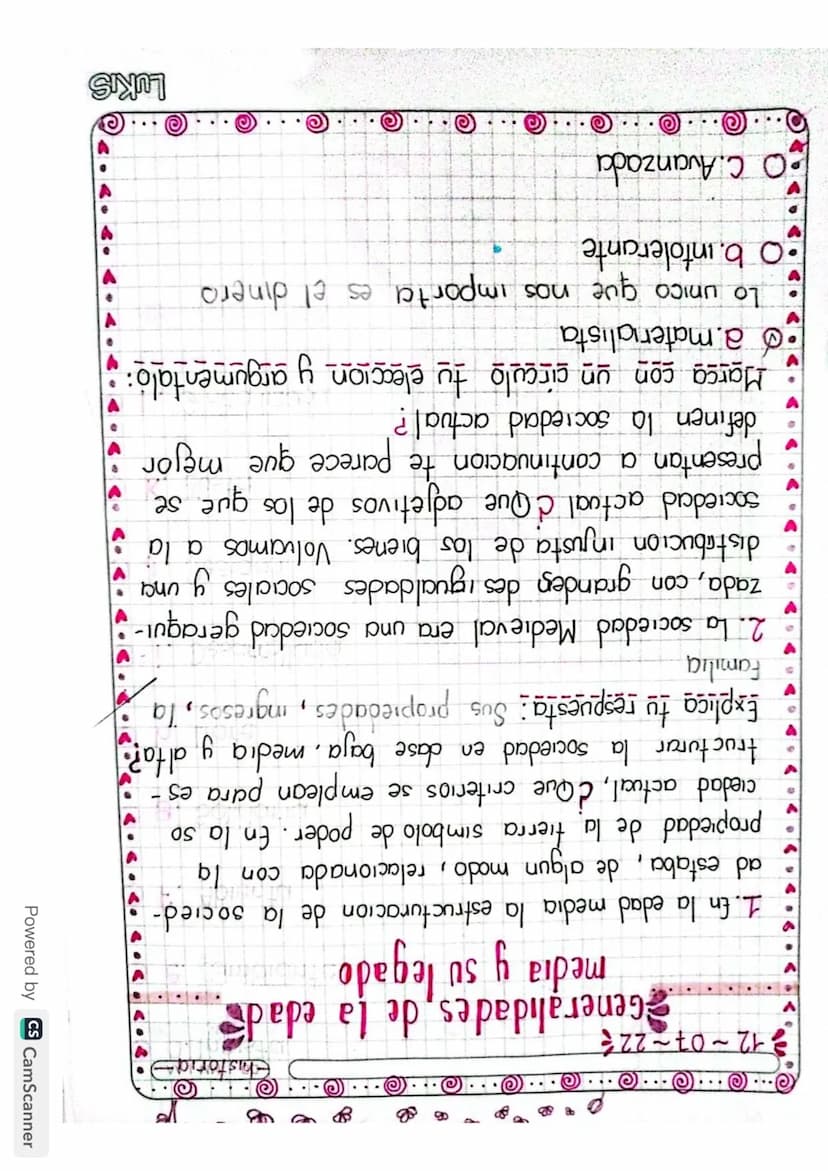 Historia
12 ~ 07 ~ 22
Generalidades de la edad
media y su legado
1. En la edad media la estructuracion de la socied-
ad estaba, de algun modo, relacionada con la
propiedad de la tierra simbolo de poder. En la so
ciedad actual, ¿Que criterios se emplean para es-
tructurar la sociedad en clase baja, media y alta?
Explica tu respuesta: Sus propiedades, ingresos, la
Familia
2. La sociedad Medieval era una sociedad geraqui-
zada, con grandes desigualdades sociales y una
distribucion injusta de los bienes. Volvamos a la
sociedad actual ¿Que adjetivos de los que se
presentan a continuacion te parece que mejor
definen la sociedad actual?
Marca con un circulo tu eleccion y argumentalo:
a. materialista
Lo unico que nos importa es el dinero
b. intolerante
C. Avanzada
LUKIS
Powered by CS CamScanner